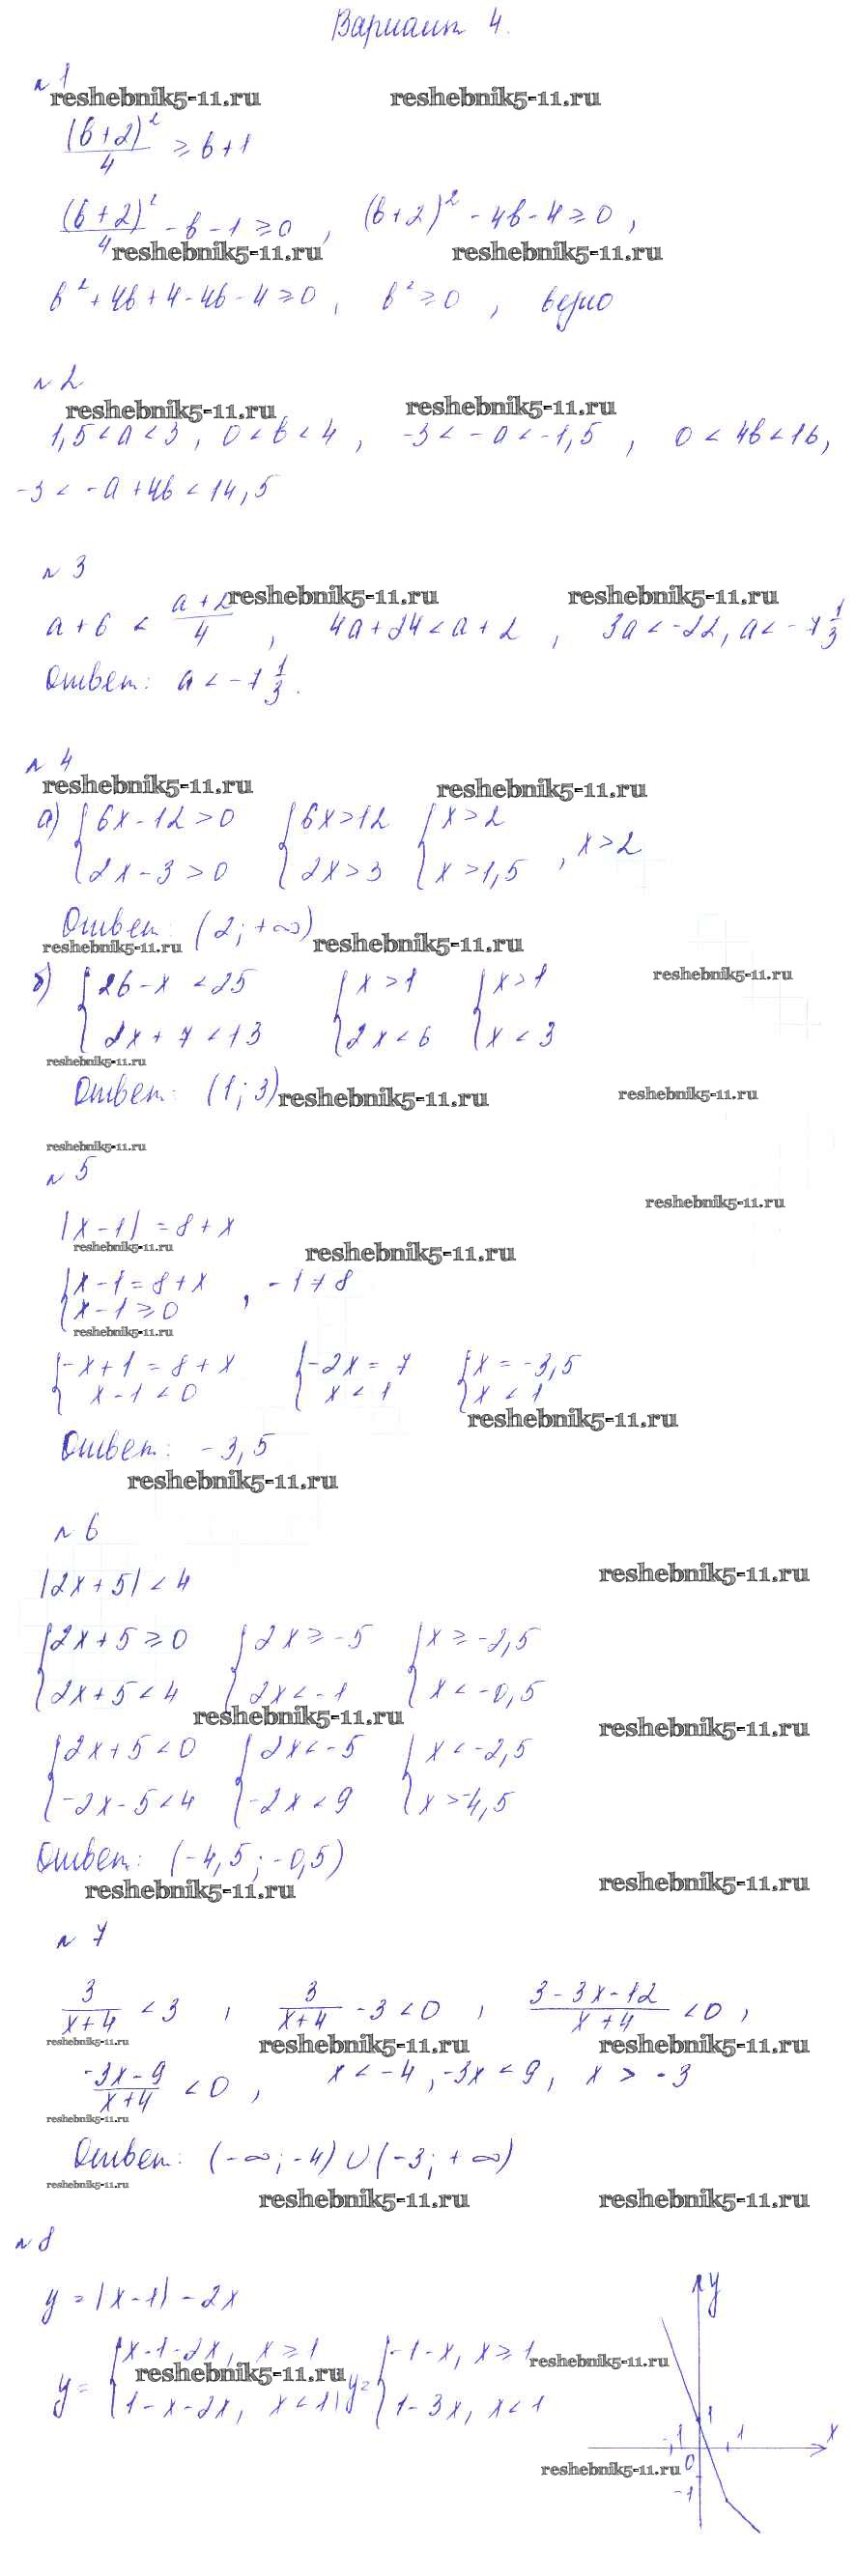 Вариант 4.
№ 1
reshebnik5-11.ru reshebnik5-11.ru
(b+2)²/4 ≥ b+1
(b+2)²/4 - b - 1 ≥ 0 , (b+2)² - 4b - 4 ≥ 0 ,
reshebnik5-11.ru reshebnik5-11.ru
b² + 4b + 4 - 4b - 4 ≥ 0 , b² ≥ 0 , верно
№ 2
reshebnik5-11.ru reshebnik5-11.ru
1,5 < a < 3 , 0 < b < 4 , -3 < -a < -1,5 , 0 < 4b < 16,
-3 < -a + 4b < 14,5
№ 3
reshebnik5-11.ru reshebnik5-11.ru
a + 6 < (a+2)/4 , 4a + 24 < a + 2 , 3a < -22, a < -7 1/3
Ответ: a < -7 1/3.
№ 4
reshebnik5-11.ru reshebnik5-11.ru
а) { 6x - 12 > 0 { 6x > 12 { x > 2
{ 2x - 3 > 0 { 2x > 3 { x > 1,5 , x > 2
Ответ: (2; +∞)
reshebnik5-11.ru reshebnik5-11.ru
б) { 26 - x < 25 { x > 1 { x > 1
reshebnik5-11.ru
{ 2x + 7 < 13 { 2x < 6 { x < 3
reshebnik5-11.ru
Ответ: (1; 3)
reshebnik5-11.ru reshebnik5-11.ru
reshebnik5-11.ru
№ 5
reshebnik5-11.ru
|x - 1| = 8 + x
reshebnik5-11.ru reshebnik5-11.ru
{ x - 1 = 8 + x , -1 ≠ 8
{ x - 1 ≥ 0
reshebnik5-11.ru
{ -x + 1 = 8 + x { -2x = 7 { x = -3,5
{ x - 1 < 0 { x < 1 { x < 1
reshebnik5-11.ru
Ответ: -3,5
reshebnik5-11.ru
№ 6
reshebnik5-11.ru
|2x + 5| < 4
{ 2x + 5 ≥ 0 { 2x ≥ -5 { x ≥ -2,5
{ 2x + 5 < 4 { 2x < -1 { x < -0,5
reshebnik5-11.ru reshebnik5-11.ru
{ 2x + 5 < 0 { 2x < -5 { x < -2,5
{ -2x - 5 < 4 { -2x < 9 { x > -4,5
Ответ: (-4,5; -0,5)
reshebnik5-11.ru reshebnik5-11.ru
№ 7
3/(x+4) < 3 , 3/(x+4) - 3 < 0 , (3 - 3x - 12)/(x+4) < 0 ,
reshebnik5-11.ru reshebnik5-11.ru reshebnik5-11.ru
(-3x - 9)/(x+4) < 0 , x < -4 , -3x < 9 , x > -3
reshebnik5-11.ru
Ответ: (-∞; -4) ∪ (-3; +∞)
reshebnik5-11.ru
reshebnik5-11.ru reshebnik5-11.ru
№ 8
y = |x - 1| - 2x
y = { x - 1 - 2x, x ≥ 1 y = { -1 - x, x ≥ 1
reshebnik5-11.ru reshebnik5-11.ru
{ 1 - x - 2x, x < 1 { 1 - 3x, x < 1
y
1
-1 1 x
0
reshebnik5-11.ru
-1